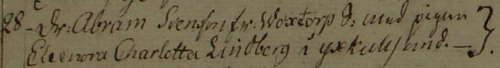 28 - Dr: Abram Svensson fr. Woxtorp S: med pigan
Eleonora Charlotta Lindberg i